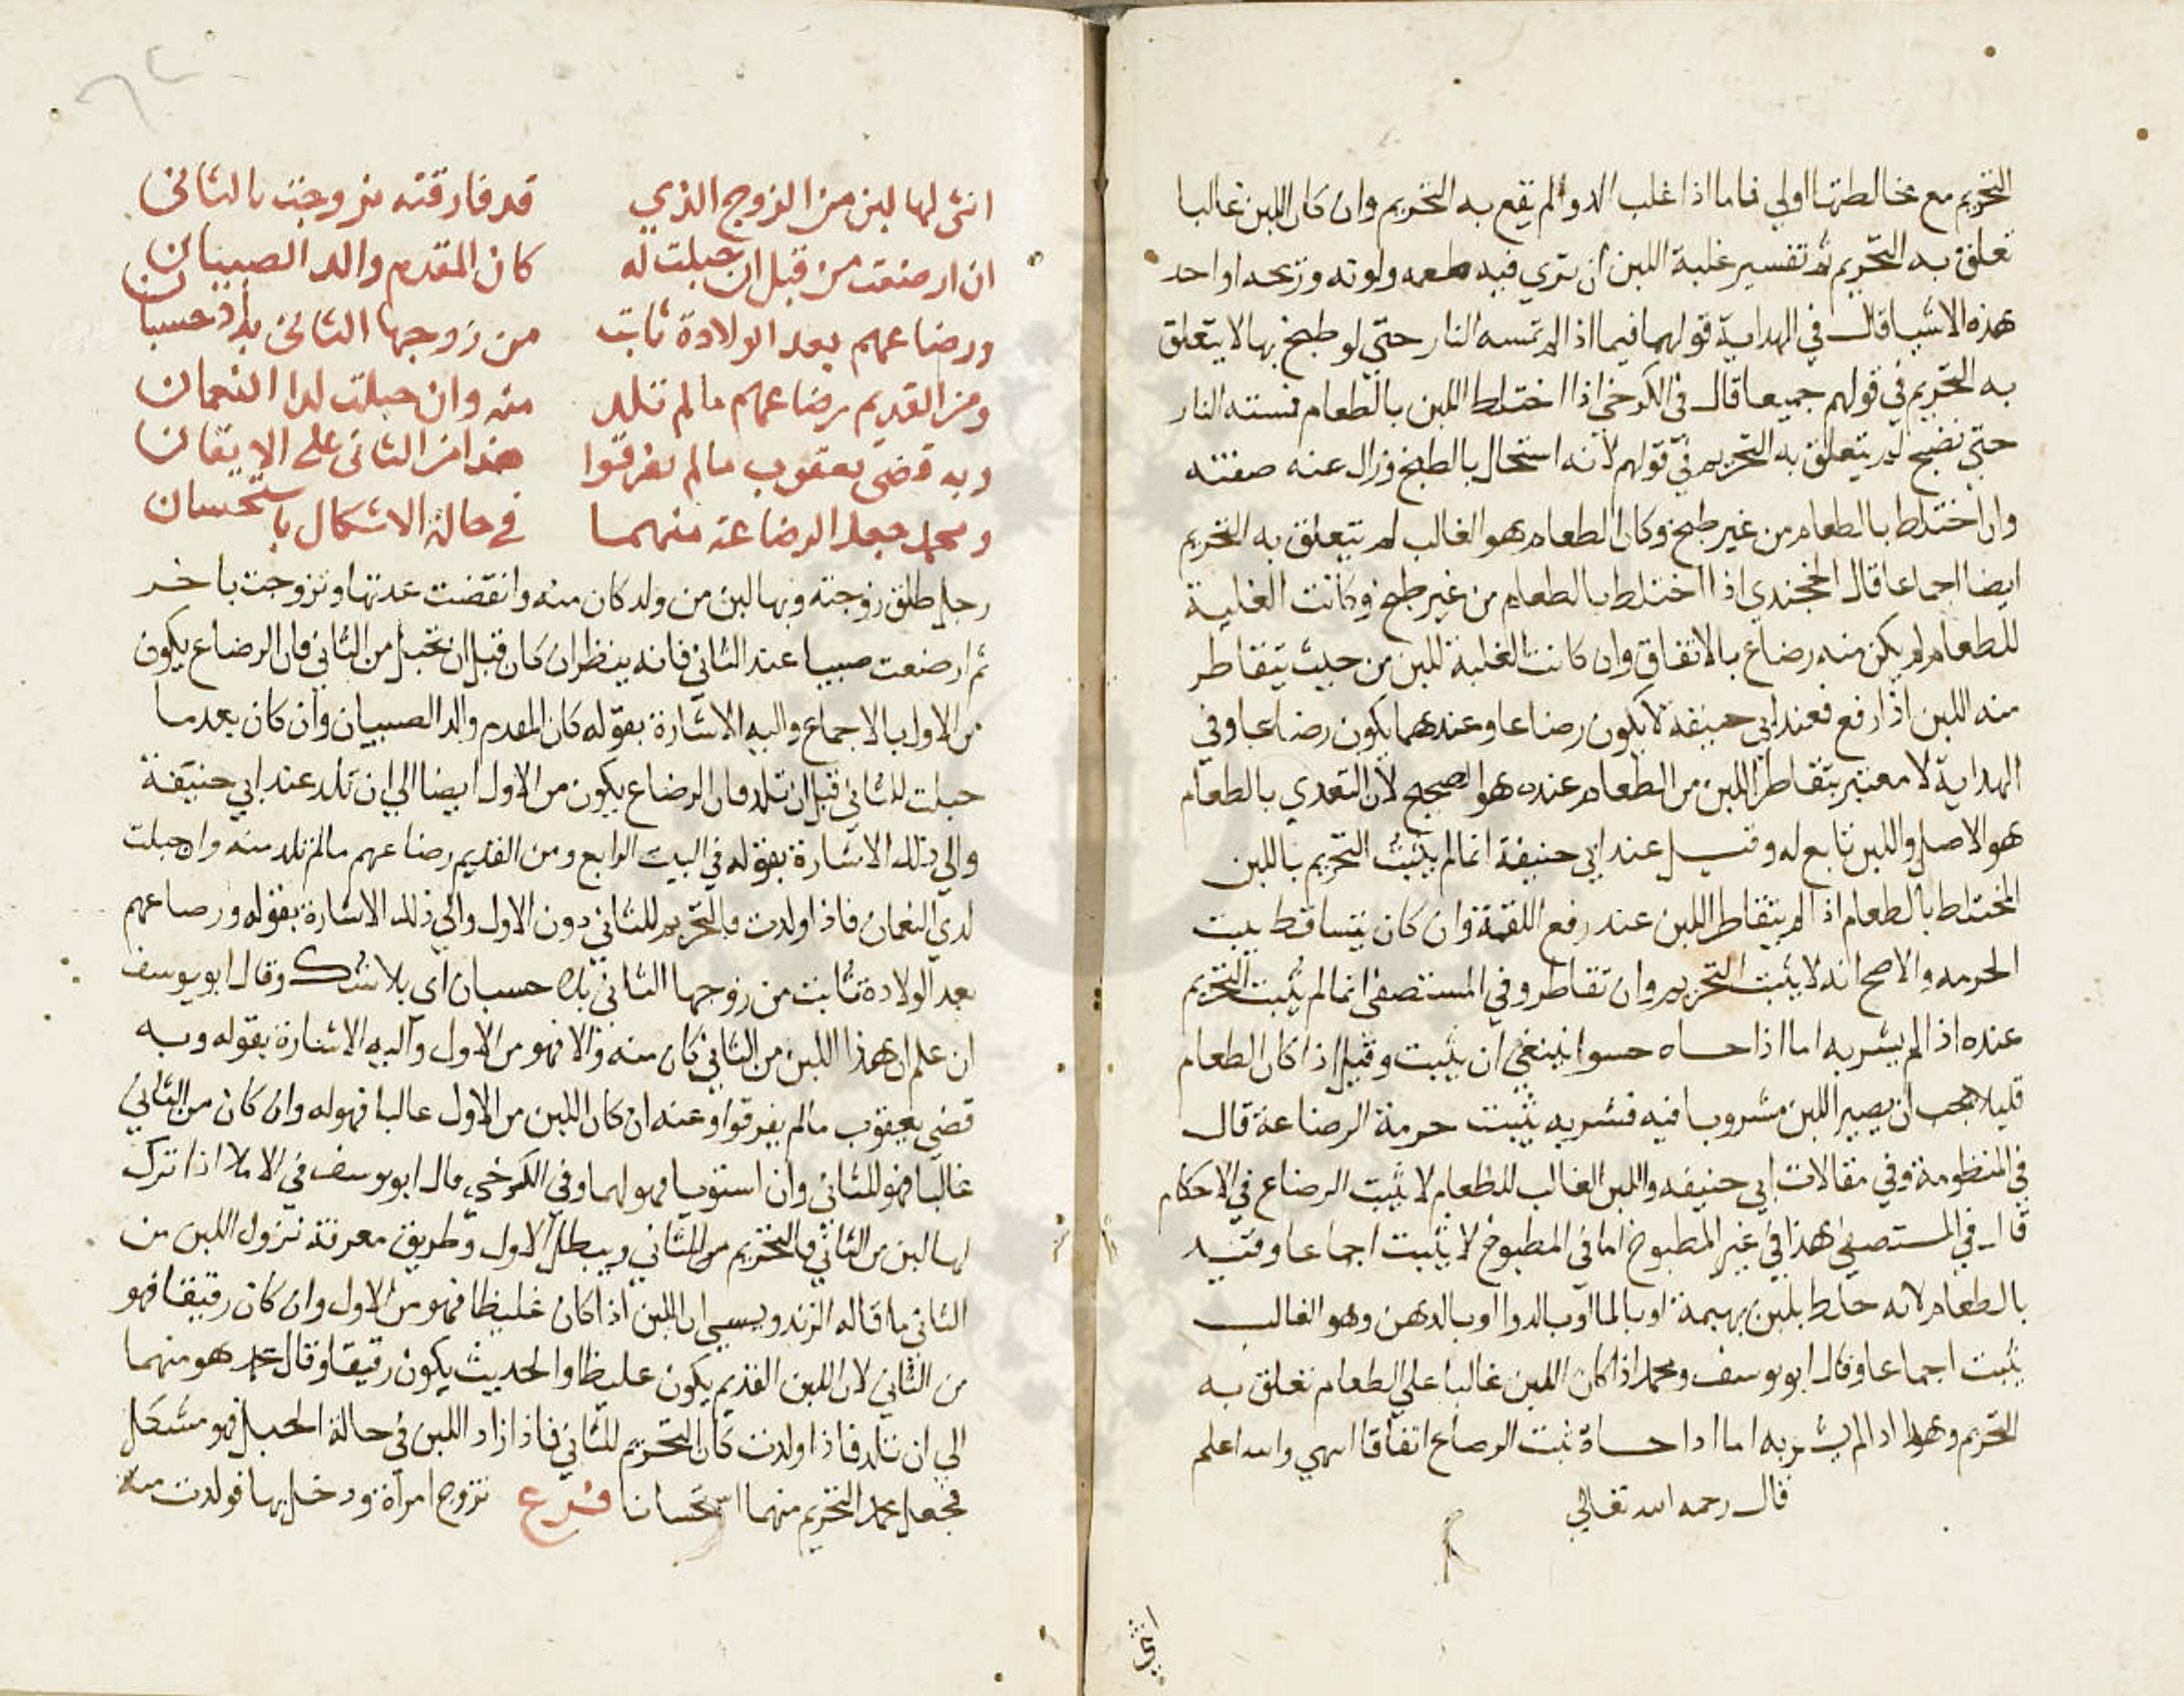 التحريم مع مخالطتها اولي فاما اذا غلب الدوا لم يقع به التحريم وان كان اللبن غالبا
تعلق به التحريم ثم تفسير غلبة اللبن ان تري فيه طعمه ولونه وريحه او احد
هذه الاشيا قال في الهداية قولهما فيما اذا لم تمسه النار حتي لو طبخ بها لا يتعلق
به التحريم في قولهم جميعا قال في الكرخي اذا اختلط اللبن بالطعام فمسته النار
حتي نضج لم يتعلق به التحريم في قولهم لانه استحال بالطبخ وزال عنه صفته
وان اختلط بالطعام من غير طبخ وكان الطعام هو الغالب لم يتعلق به التحريم
ايضا اجماعا قال الخجندي اذا اختلط بالطعام من غير طبخ وكانت الغلبة
للطعام لم يكن منه رضاع بالاتفاق وان كانت الغلبة للبن من حيث يتقاطر
منه اللبن اذا رفع فعند ابي حنيفة لا يكون رضاعا وعندهما يكون رضاعا وفي
الهداية لا معتبر بتقاطر اللبن من الطعام عنده هو الصحيح لان التغدي بالطعام
هو الاصل واللبن تابع له وقيل عند ابي حنيفة انما لم يثبت التحريم باللبن
المختلط بالطعام اذا لم يتقاطر اللبن عند رفع اللقمة وان كان يتساقط يثبت
الحرمه والاصح انه لا يثبت التحريم وان تقاطر وفي المستصفى انما لم يثبت التحريم
عنده اذا لم يشربه اما اذا حساه حسوا ينبغي ان يثبت وقيل اذا كان الطعام
قليلا بحيث ان يصير اللبن مشروبا فيه فشربه يثبت حرمة الرضاعة قال
في المنظومة وفي مقالات ابي حنيفه واللبن الغالب للطعام لا يثبت الرضاع في الاحكام
قال في المستصفي هذا في غير المطبوخ اما في المطبوخ لا يثبت اجماعا وقيد
بالطعام لانه خلط بلبن بهيمة او بالما او بالدوا او بالدهن وهو الغالب
يثبت اجماعا وقال ابو يوسف ومحمد اذا كان اللبن غالبا علي الطعام تعلق به
التحريم وهذا اذا لم يشربه اما اذا حساة ثبت الرضاع اتفاقا انتهي والله اعلم
قال رحمه الله تعالي
انثي
انثى لها لبن من الزوج الذي قد فارقته تزوجت بالثاني
ان ارضعت من قبل ان حبلت له كان المقدم والد الصبيان
ورضاعهم بعد الولادة ثابت من زوجها الثانى بلا حسبان
ومن القديم رضاعهم ما لم تلد منه وان حبلت لدا النعمان
وبه قضى يعقوب ما لم يفرقوا هذا من الثانى على الايقان
ومحمد جعل الرضاعة منهما في حالة الاشكال باستحسان
رجل طلق زوجته وبها لبن من ولد كان منه وانقضت عدتها وتزوجت باخر
ثم ارضعت صبيا عند الثاني فانه ينظر ان كان قبل ان تحبل من الثاني فان الرضاع يكون
من الاول بالاجماع واليه الاشارة بقوله كان المقدم والد الصبيان وان كان بعد ما
حبلت للثاني قبل ان تلد فان الرضاع يكون من الاول ايضا الي ان تلد عند ابي حنيفة
والي ذلك الاشارة بقوله في البيت الرابع ومن القديم رضاعهم ما لم تلد منه وان حبلت
لدي النعمان فاذا ولدت فالتحريم للثاني دون الاول والي ذلك الاشارة بقوله ورضاعهم
بعد الولادة ثابت من زوجها الثاني بلا حسبان اي بلا شك وقال ابو يوسف
ان علم ان هذا اللبن من الثاني كان منه والا فهو من الاول واليه الاشارة بقوله وبه
قضي يعقوب ما لم يفرقوا وعنه ان كان اللبن من الاول غالبا فهو له وان كان من الثاني
غالبا فهو للثاني وان استويا فهو لهما وفي الكرخي قال ابو يوسف في الاملا اذا نزل
لها لبن من الثاني فالتحريم من الثاني ويبطل الاول وطريق معرفة نزول اللبن من
الثاني ما قاله الزندويسي ان اللبن اذا كان غليظا فهو من الاول وان كان رقيقا فهو
من الثاني لان اللبن القديم يكون غليظا والحديث يكون رقيقا وقال محمد هو منهما
الي ان تلد فاذا ولدت كان التحريم للثاني فاذا زاد اللبن في حالة الحبل فهو مشكل
فجعل محمد التحريم منهما استحسانا فرع تزوج امراة ودخل بها فولدت منه